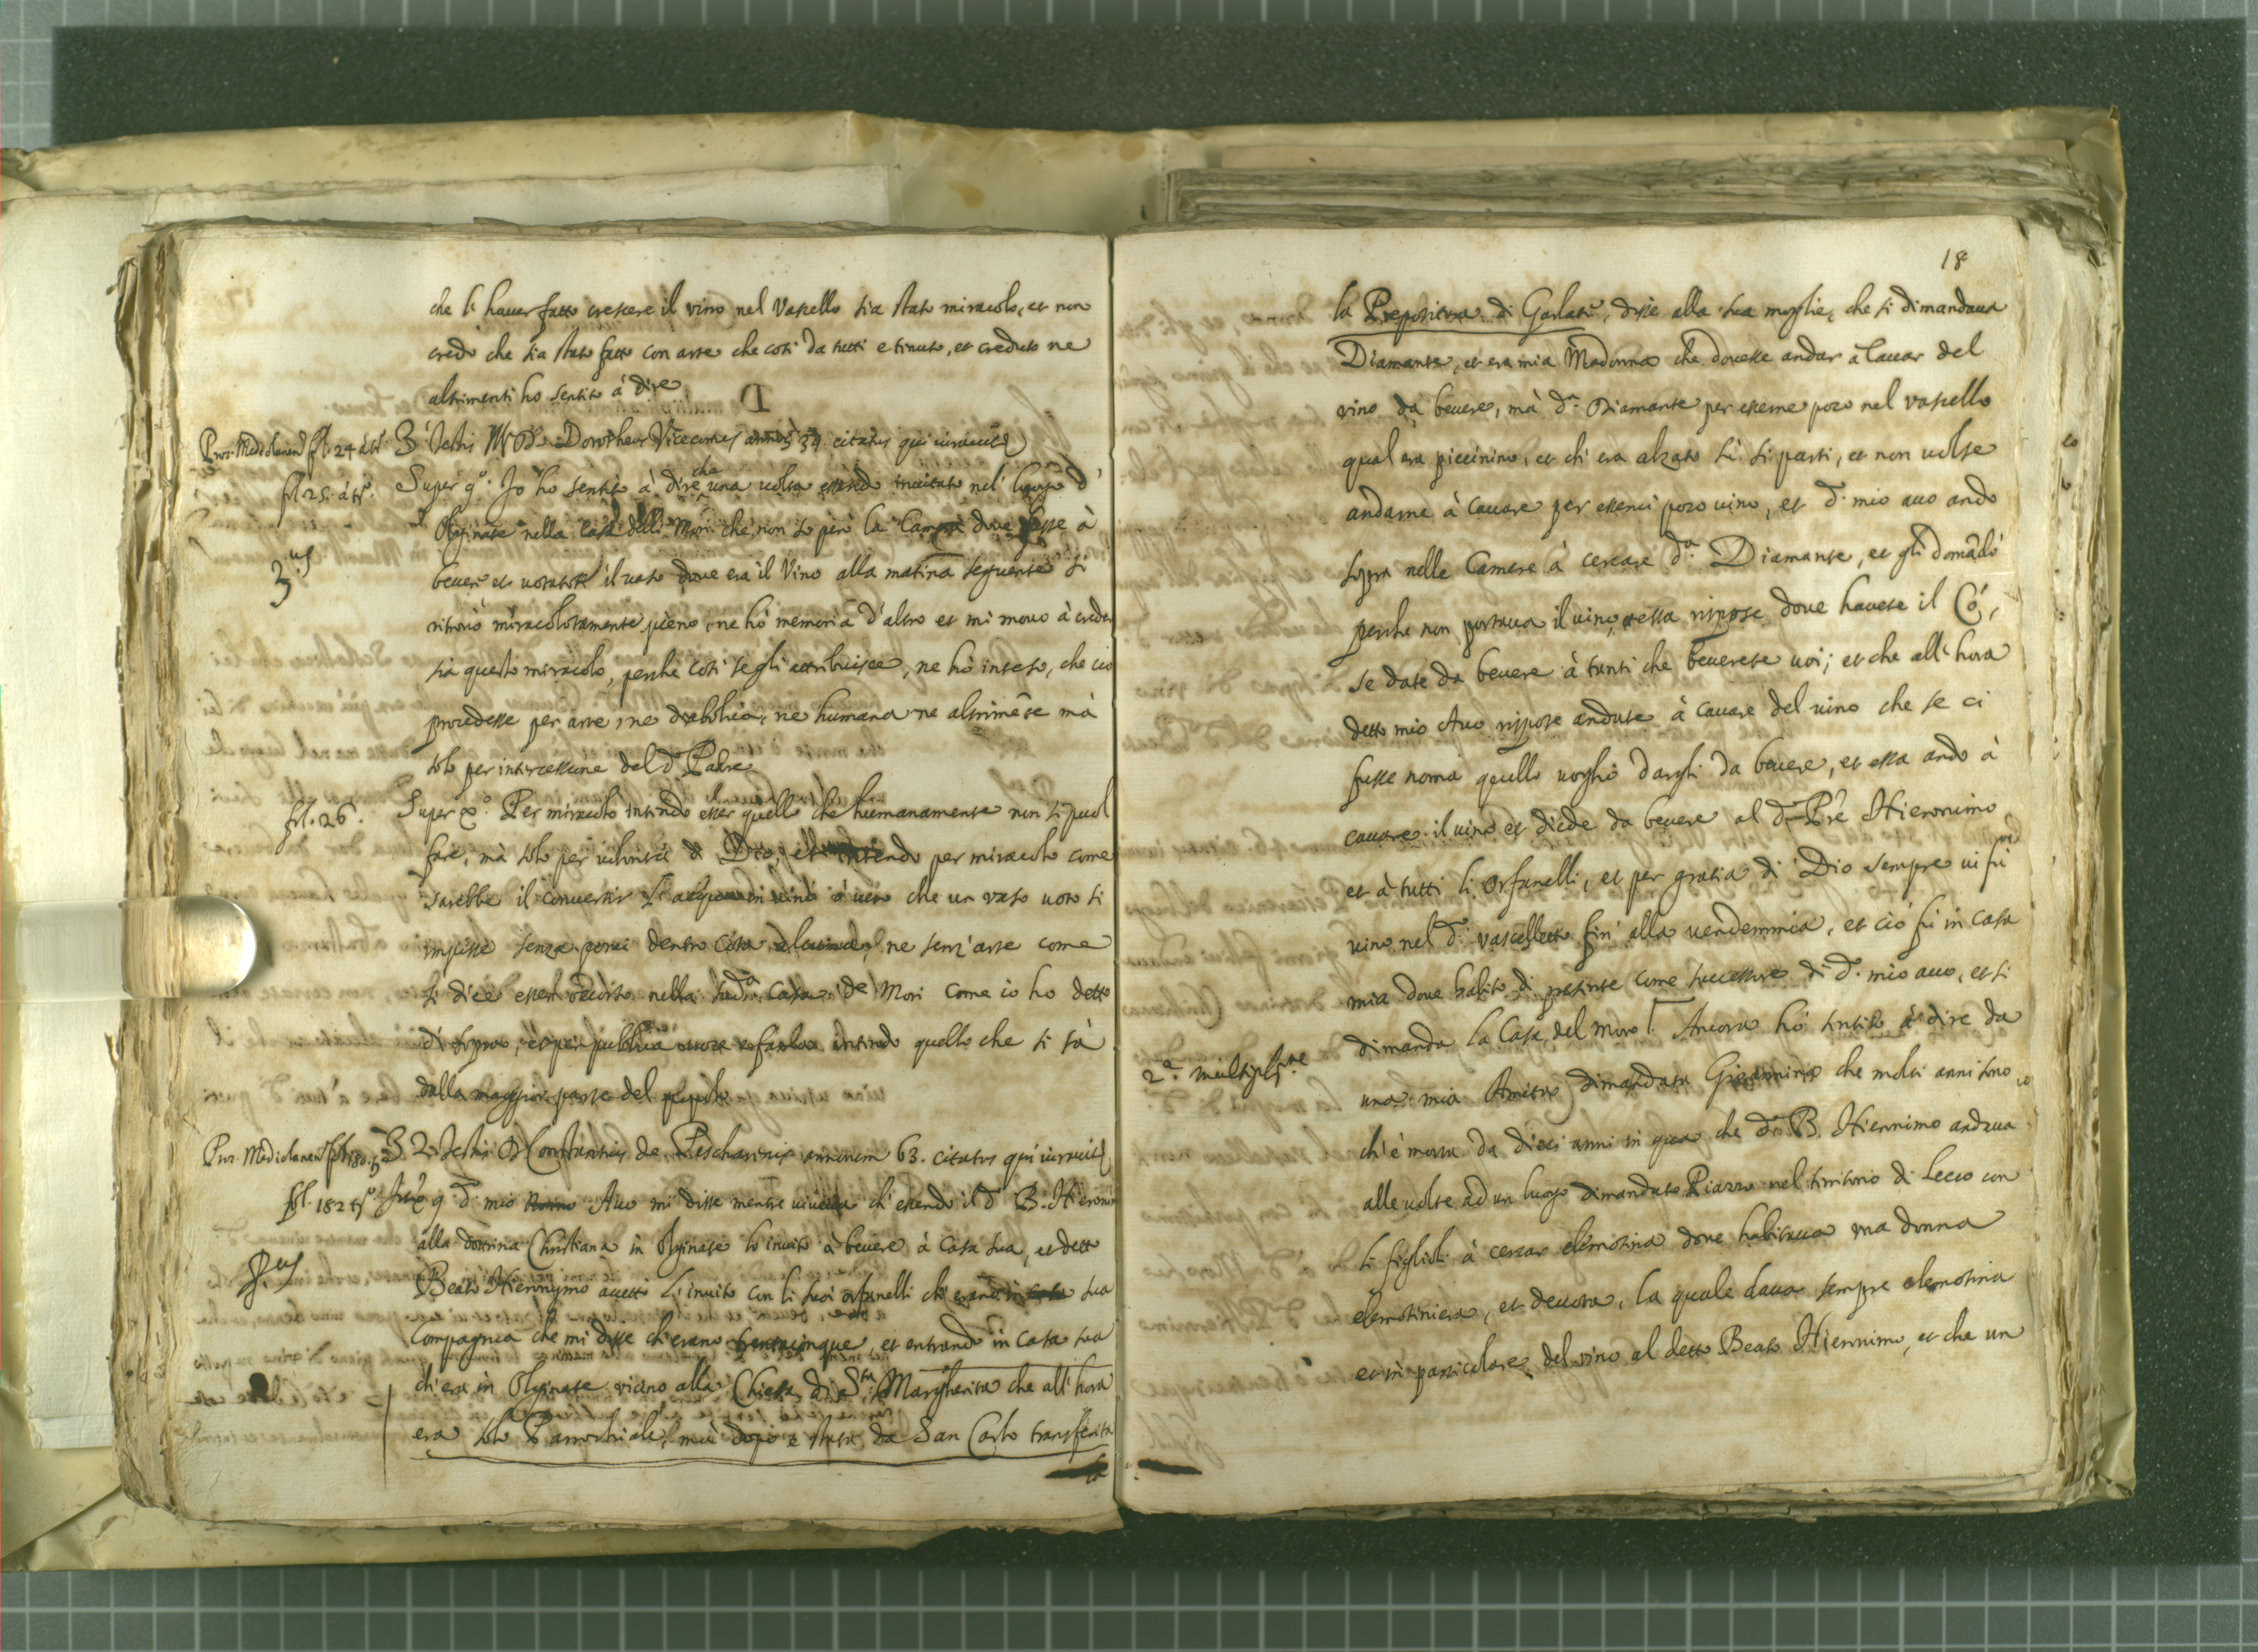 che l'hauer fatto crescere il vino nel Vascello sia stato miracolo, et non
credo che sia stato fatto con arte che così da tutti è tinuto, et creduto ne
altrimenti ho sentito à dire
Proc. Mediolanen fol. 24 à tº. 3 Testis Dorotheus Vicecomes annos 39 citatus qui iurauit
fol. 25. à tº. Super 9º. Io hò sentito à dire che una uolta essendo inuitato nel luogo d'
Olginate nella casa delli Mori che non so però la Camera doue fosse à
3.us
beuere et uotatosi il uaso doue era il Vino alla matina seguente si
ritrouò miracolosamente pieno, ne hò memoria d'altro et mi mouo à creder
sia questo miracolo, perche così se gli attribuisce, ne hò inteso, che ciò
procedesse per arte, ne diabolica, ne humana ne altrimẽte mà
solo per intercessione del dº Padre
fol. 26. Super xº. Per miracolo intendo esser quello che humanamente non si può
fare, mà solo per uolontà di Dio, et intendo per miracolo come
sarebbe il conuertir l'acqua in vino ò uero che un vaso uoto si
impisse senza porui dentro cosa alcuna, ne senz'arte come
si dice esser occorso nella sudª Casa de Mori come io ho detto
di sopra, et per publica uoce e fama intendo quello che si sà
dalla maggior parte del popolo
Proc. Mediolanen fol. 180. 2 Testis Constantius de Pescharinis annorum 63. citatus qui iurauit
fol. 182 tº. 9 dº. mio Auo mi disse mentre uiueua ch'essendo il dº B. Hieronimo
alla dottrina Christiana in Olginate lo inuitò à beuere à Casa sua, et detto
Beato Hieronymo accettò l'inuito con li suoi orfanelli ch'erano in sua
Compagnia che mi disse ch'erano trentacinque, et entrando in Casa sua
ch'era in Olginate vicino alla Chiesa di Sta Margherita che all'hora
era solo Parrochiale, mà dopò è stata da San Carlo transferita
la
18
la Prepositura di Garlate, disse alla sua moglie, che si dimandaua
Diamante, et era mia Madonna che douesse andar à Cauar del
vino da beuere, mà dª. Diamante per esserne poco nel vascello
qual era piccinino, et ch'era alzato sù si partì, et non uolse
andarne à cauare per esserui poco uino, et dº. mio auo andò
sopra nelle Camere à cercare dª. Diamante, et gli domãdò
perche non portaua il uino, et essa rispose doue hauete il Có,
se date da beuere à tanti che beuerete uoi; et che all'hora
detto mio Auo rispose andate à cauare del uino che se ci
fusse noma quello uoglio dargli da beuere, et essa andò à
cauare il uino et diede da beuere al dº Pre Hieronimo
et à tutti li Orfanelli, et per gratia di Dio sempre ui fù poi
uino nel dº. vascelletto fin'alla uendemmia, et ciò fù in Casa
mia doue habito di presente come successore di dº. mio auo, et si
dimanda la Casa del Moro. Ancora hò sentito à dire da
2ª. multiplne.
una mia Amita dimandata Giouannina che molti anni sono
ch'è morta da dieci anni in qua che dº B. Hieronimo andaua
alle uolte ad un luogo dimandato Piazzo nel territorio di Lecco con
li figlioli à cercar elemosina doue habitaua una donna
elemosiniera, et deuota, la quale daua sempre elemosina
et in particolare del vino al detto Beato Hieronimo, et che un